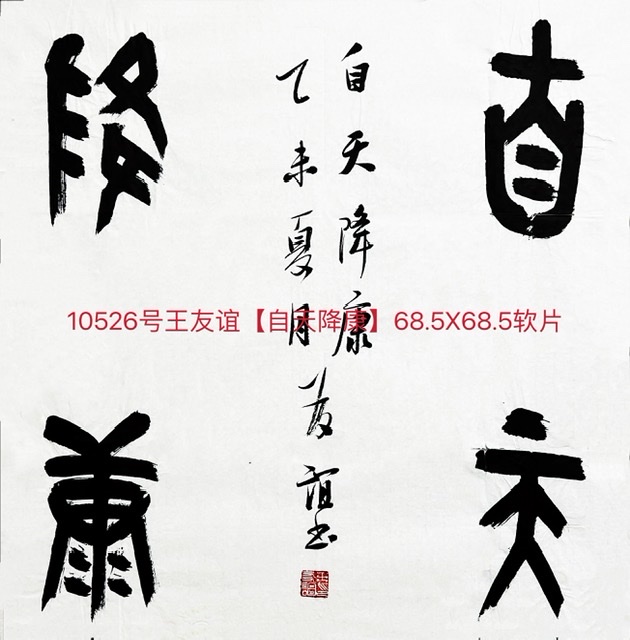 自天
降康
自天降康
乙未夏月友谊书
10526号王友谊【自天降康】68.5X68.5软片